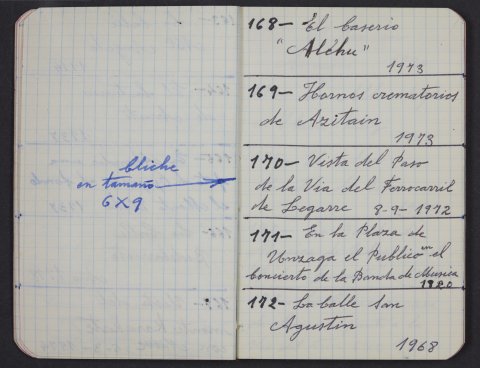 Cliche
en tamaño
6X9
168- El Caserio
"Alchu"
1973
169- Hornos crematorios
de Azitain
1973
170- Vista del Paso
de la Via del Ferrocarril
de Legarre 8-9-1972
171- En la Plaza de
Unzaga el Publico en el
Concierto de la Banda de Musica
1920
172- La Calle San
Agustin
1968